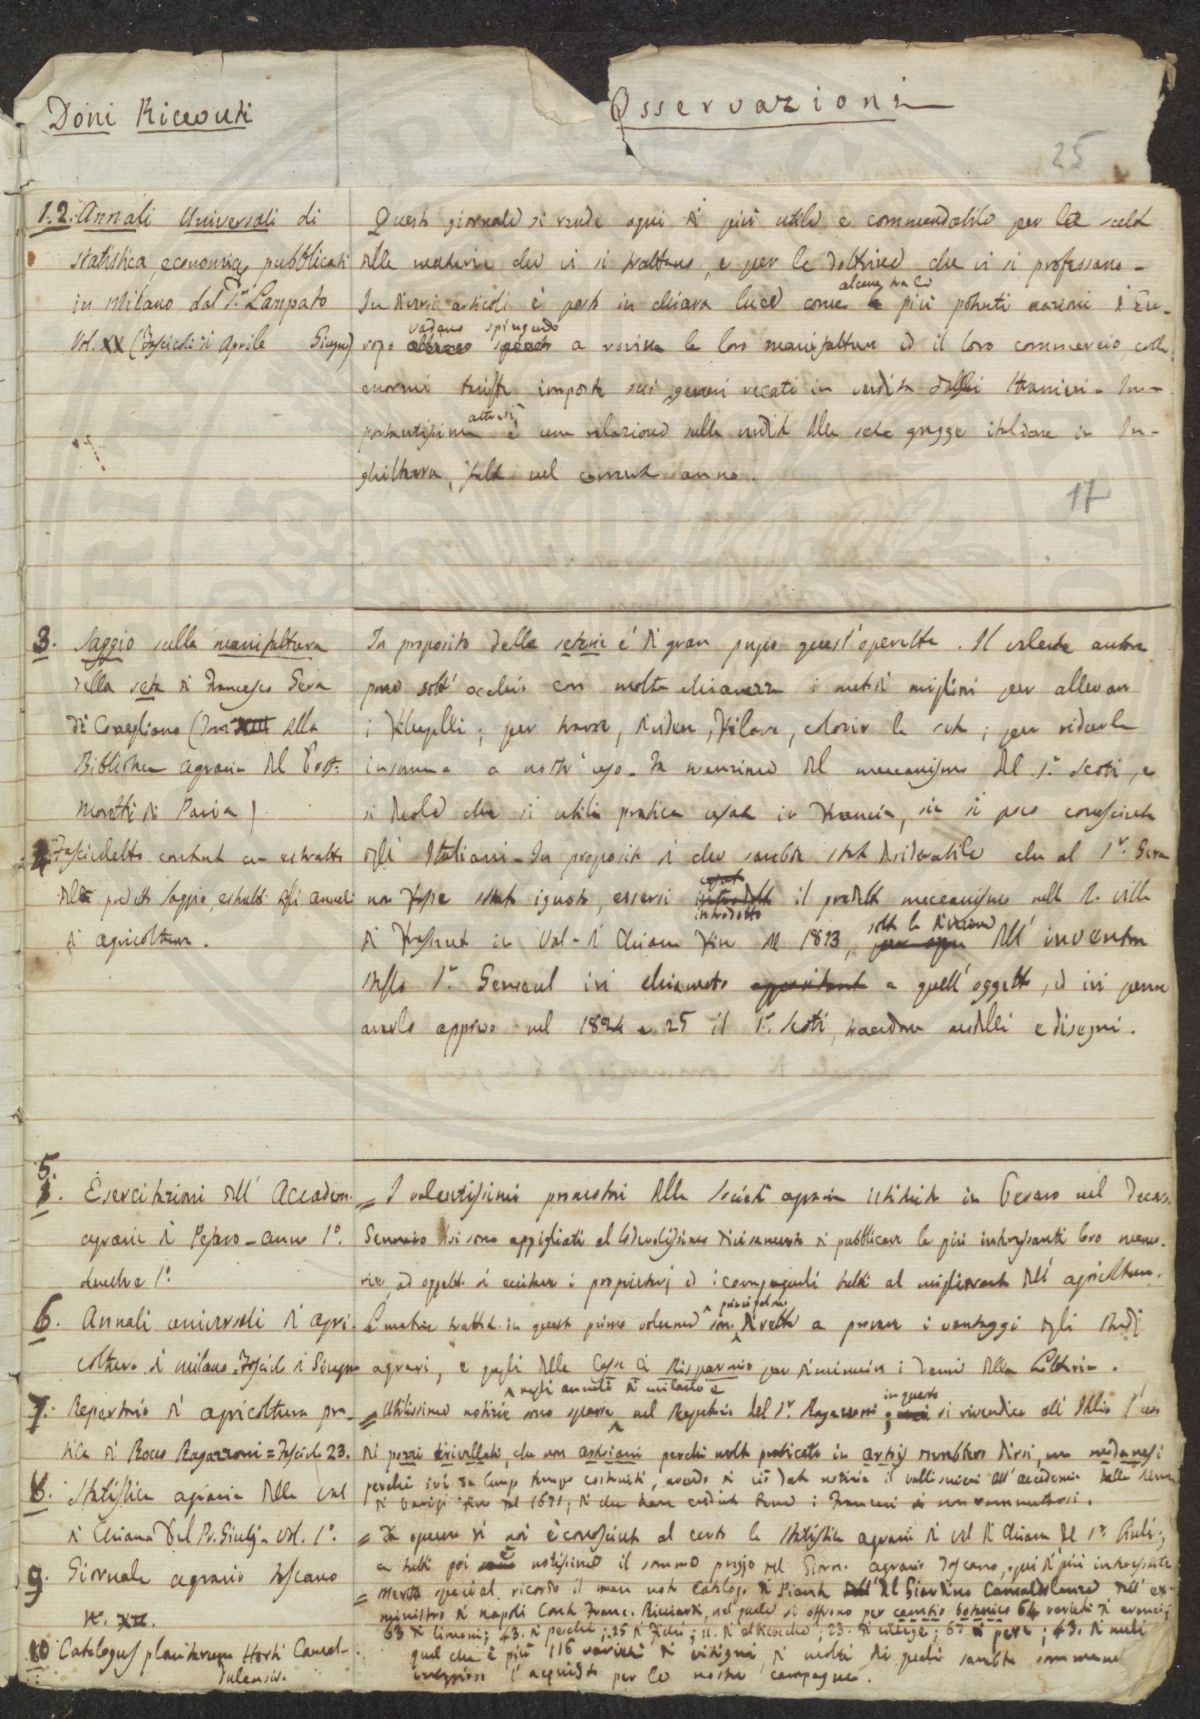 Doni Ricevuti
Osservazioni
25
1.2. Annali Universali di
statistica, economia, pubblicati
in Milano dal S.r Lampato
Vol. XX (Fascicoli di Aprile Giugno)
Questo giornale si rende ogni dì più utile e commendabile per la scelta
delle materie che vi si trattano, e per le dottrine che vi si professano.
In diversi articoli è posto in chiara luce come alcune tra le più potenti nazioni d'Eu-
ropa vadano spingendo a rovina le loro manifatture ed il loro commercio, colle
enormi tariffe imposte sui generi recati in vendita dagli stranieri. Im-
portantissima altresì è una relazione sulla vendita delle sete gregge italiane in In-
ghilterra, fatta nel corrente anno.
17
3. Saggio sulla manifattura
della seta di Francesco Gera
di Conegliano (Tomo XIII della
Biblioteca agraria del Prof.
Moretti di Pavia)
4 Fascicoletto contenente un estratto
del predetto saggio, estratto dagli annali
di agricoltura.
In proposito delle seterie è di gran pregio quest'operetta. Il valente autore
pone sott'occhio con molta chiarezza i metodi migliori per allevare
i filugelli; per trarre, filare, colorir la seta; per ridurla
insomma a nostr'uso. Fa menzione del meccanismo del S.r Scoti, e
si duole che sì utile pratica usata in Francia, sia sì poco conosciuta
dagl'Italiani. In proposito di che sarebbe stato desiderabile che al S.r Gera
non fosse stato ignoto, essersi introdotto il predetto meccanismo nella R. villa
di in Val-di Chiana fin dal 1823, sotto la direzione dell'inventore
stesso S.r Gensoul ivi chiamato a quell'oggetto, ed ivi
averlo appreso nel 1824 e 25 il S.r Scoti, traendone modelli e disegni.
5. Esercitazioni dell'Accademia
agraria di Pesaro - anno 1.o
semestre 1.o
= I valentissimi promotori della Società agraria istituita in Pesaro nel decorso
Gennaio si sono appigliati al lodevolissimo divisamento di pubblicare le più interessanti loro memo-
rie, ad oggetto di eccitare i proprietarj ed i compagnuoli tutti al miglioramento dell'agricoltura.
6. Annali universali di agri-
coltura di Milano. Fascicolo di Giugno
Le materie trattate in questo primo volume son principalmente dirette a provare i vantaggi degli studi
agrari, e quegli delle Casse di Risparmio per diminuire i danni della Lotteria.
7. Repertorio di agricoltura pra-
tica di Rocco Ragazzoni = Fascicolo 23.
negli annali di Milano e
= Utilissime notizie sono sparse nel Repertorio del S.r Ragazzoni; in questo si rivendica all'Italia l'uso
dei pozzi trivellati, che non artesiani perchè molto praticati in Artois dovrebbero dirsi, ma modanesi
perchè ivi da lungo tempo costruiti, avendo di ciò data notizia il Vallisnieri all'accademia delle scienze
di Parigi fin dal 1671, di che hanno creduto bene i Francesi di non rammentarsi.
8. Statistica agraria della Val
di Chiana del Pr. Giulj. Vol. 1.o
= Da ognuno di noi è conosciuta al certo la Statistica agraria di Val di Chiana del S.r Giulj;
9. Giornale agrario Toscano
N. XV.
a tutti poi è notissimo il sommo pregio del Giorn. agrario Toscano,
10 Catalogus plantarum Horti Camal-
dulensis.
= Merita special ricordo il non noto Catalogo di Piante del Giardino Camaldolense dell'ex-
ministro di Napoli Conte Franc. Ricciardi, nel quale si offrono per cambio botanico 64 varietà di aranci;
63 di limoni; 43. di pesche; 35 di fichi; 11. di albicocche; 23. di ciliege; 67 di pere; 43. di meli
quel che è più 116 varietà di vitigni, di molti dei quali sarebbe sommamente
prezioso l'acquisto per le nostre campagne.